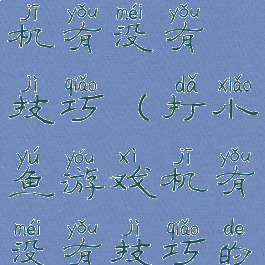 jī yǒu méi yǒu
机有没有
jì qiǎo dǎ xiǎo
技巧(打小
yú yóu xì jī yǒu
鱼游戏机有
méi yǒu jì qiǎo de
没有技巧的